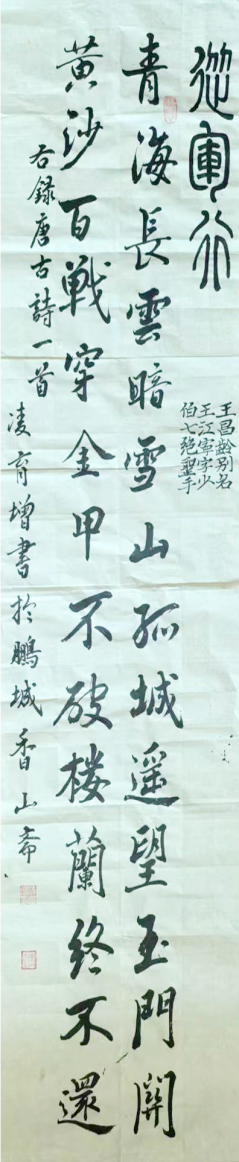 從軍行
王昌齡別名
王江寧字少
伯七絶聖手
青海長雲暗雪山孤城遥望玉門關
黃沙百戰穿金甲不破樓蘭終不還
右録唐古詩一首
凌育增書於鵬城香山齋